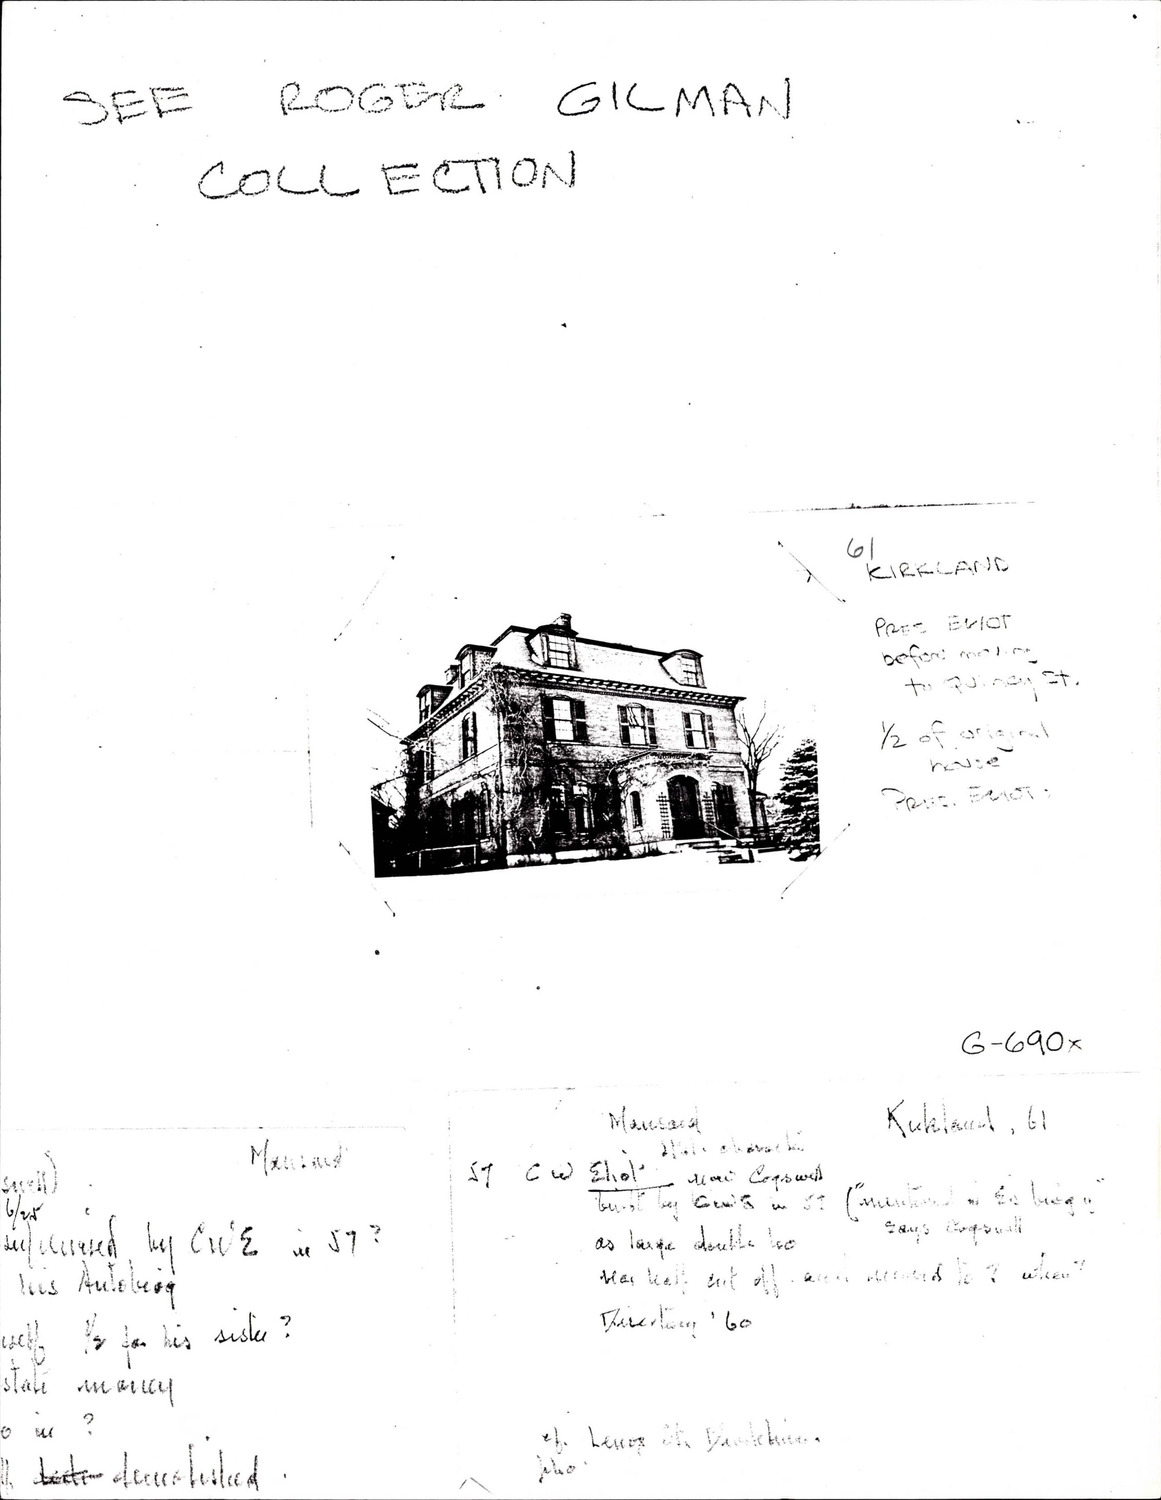 SEE ROGER GILMAN
COLLECTION
61
KIRKLAND
PRES ELIOT
before moving
to Quincy St.
1/2 of original
house
PRES. ELIOT.
G-690x
Mansard
6/25
by CWE in 57?
his Autobiog
1/2 for his sister?
state money
in ?
demolished.
Mansard Kirkland, 61
57 C W Eliot now Cogswell
built by CWE in 57 ("mentioned in E's biog'y"
says Cogswell
as large double ho
rear half cut off and moved to ? when?
Directory '60
cf. Lenox St.